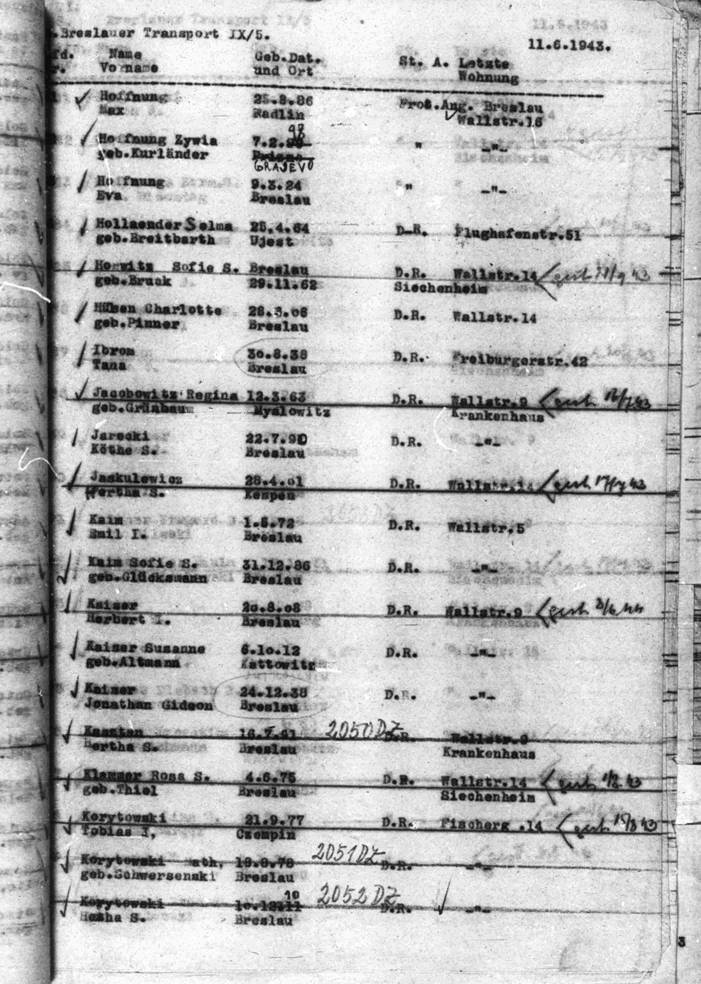 Breslauer Transport IX/5.
11.6.1943.
Name Geb.Dat. St. A. Letzte
Vorname und Ort Wohnung
Hoffnung 25.8.86 Prot.Ang. Breslau
Max Radlin Wallstr.16
98
Hoffnung Zywia 7.2. " -"-
geb.Kurländer
GRAJEVO
Hoffnung 9.3.24 " -"-
Eva Breslau
Hollaender Selma 25.4.64 D.R. Flughafenstr.51
geb.Breitbarth Ujest
Horwitz Sofie S. Breslau D.R. Wallstr.14 gest
geb.Bruck 29.11.62 Siechenheim
Charlotte 28.3.06 D.R. Wallstr.14
geb.Pinner Breslau
Ibrom 30.8.38 D.R. Freiburgerstr.42
Tana Breslau
Jacobowitz Regina 12.3.63 D.R. Wallstr.9 gest
geb.Grünbaum Myslowitz Krankenhaus
Jarecki 22.7.90 D.R. -"-
Käthe S. Breslau
Jaskulewicz 28.4.01 D.R. Wallstr.14 gest
Hertha S. Kempen
Kaim 1.6.72 D.R. Wallstr.5
Emil I. Breslau
Kaim Sofie S. 31.12.86 D.R. -"-
geb.Glücksmann Breslau
Kaiser 20.8.08 D.R. Wallstr.9 gest
Herbert I. Breslau
Kaiser Susanne 6.10.12 D.R. -"-
geb.Altmann Kattowitz
Kaiser 24.12.38 D.R. -"-
Jonathan Gideon Breslau
16.7.91 2050 DZ D.R. Wallstr.9
Hertha S. Breslau Krankenhaus
Klammer Rosa S. 4.6.75 D.R. Wallstr.14 gest
geb.Thiel Breslau Siechenheim
Korytowski 21.9.77 D.R. Fischerg.14 gest
Tobias I. Czempin
Korytowski 2051 DZ D.R. -"-
geb.Schwersenski Breslau
10
Korytowski 2052 DZ D.R. -"-
S. Breslau
3